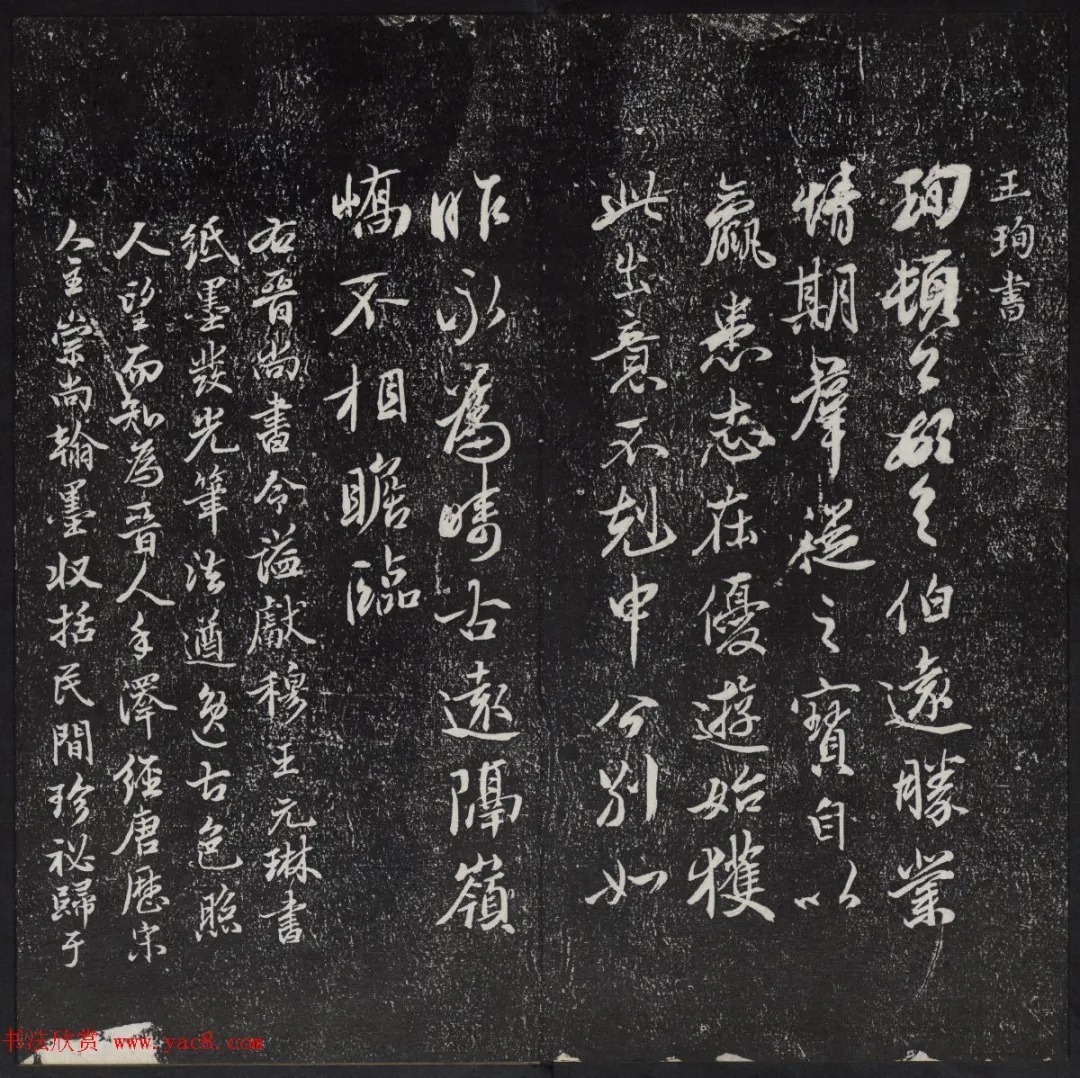 王珣書
珣頓〻首〻伯遠勝業
情期羣從之寶自以
羸患志在優遊始獲
此出意不剋申分別如
昨永為疇古遠隔嶺
嶠不相瞻臨
右晉尚書令謚獻穆王元琳書
紙墨發光筆法遒逸古色照
人望而知為晉人手澤經唐歷宋
人主崇尚翰墨收括民間珍祕歸于
书法欣赏 www.yac8.com